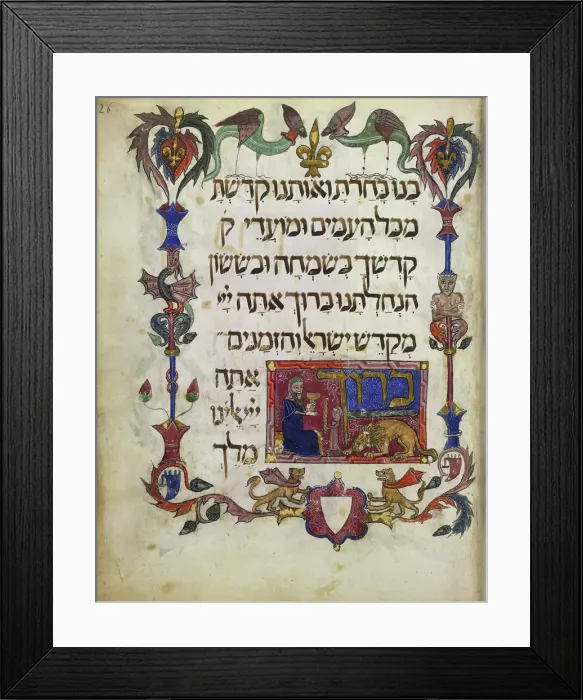 26
בנו בחרת ואותנו קדשת
מכל העמים ומועדי ק
קדשך בשמחה ובששון
הנחלתנו ברוך אתה ייי
מקדש ישראל והזמנים
ברוך אתה
ייי אלהינו
מלך